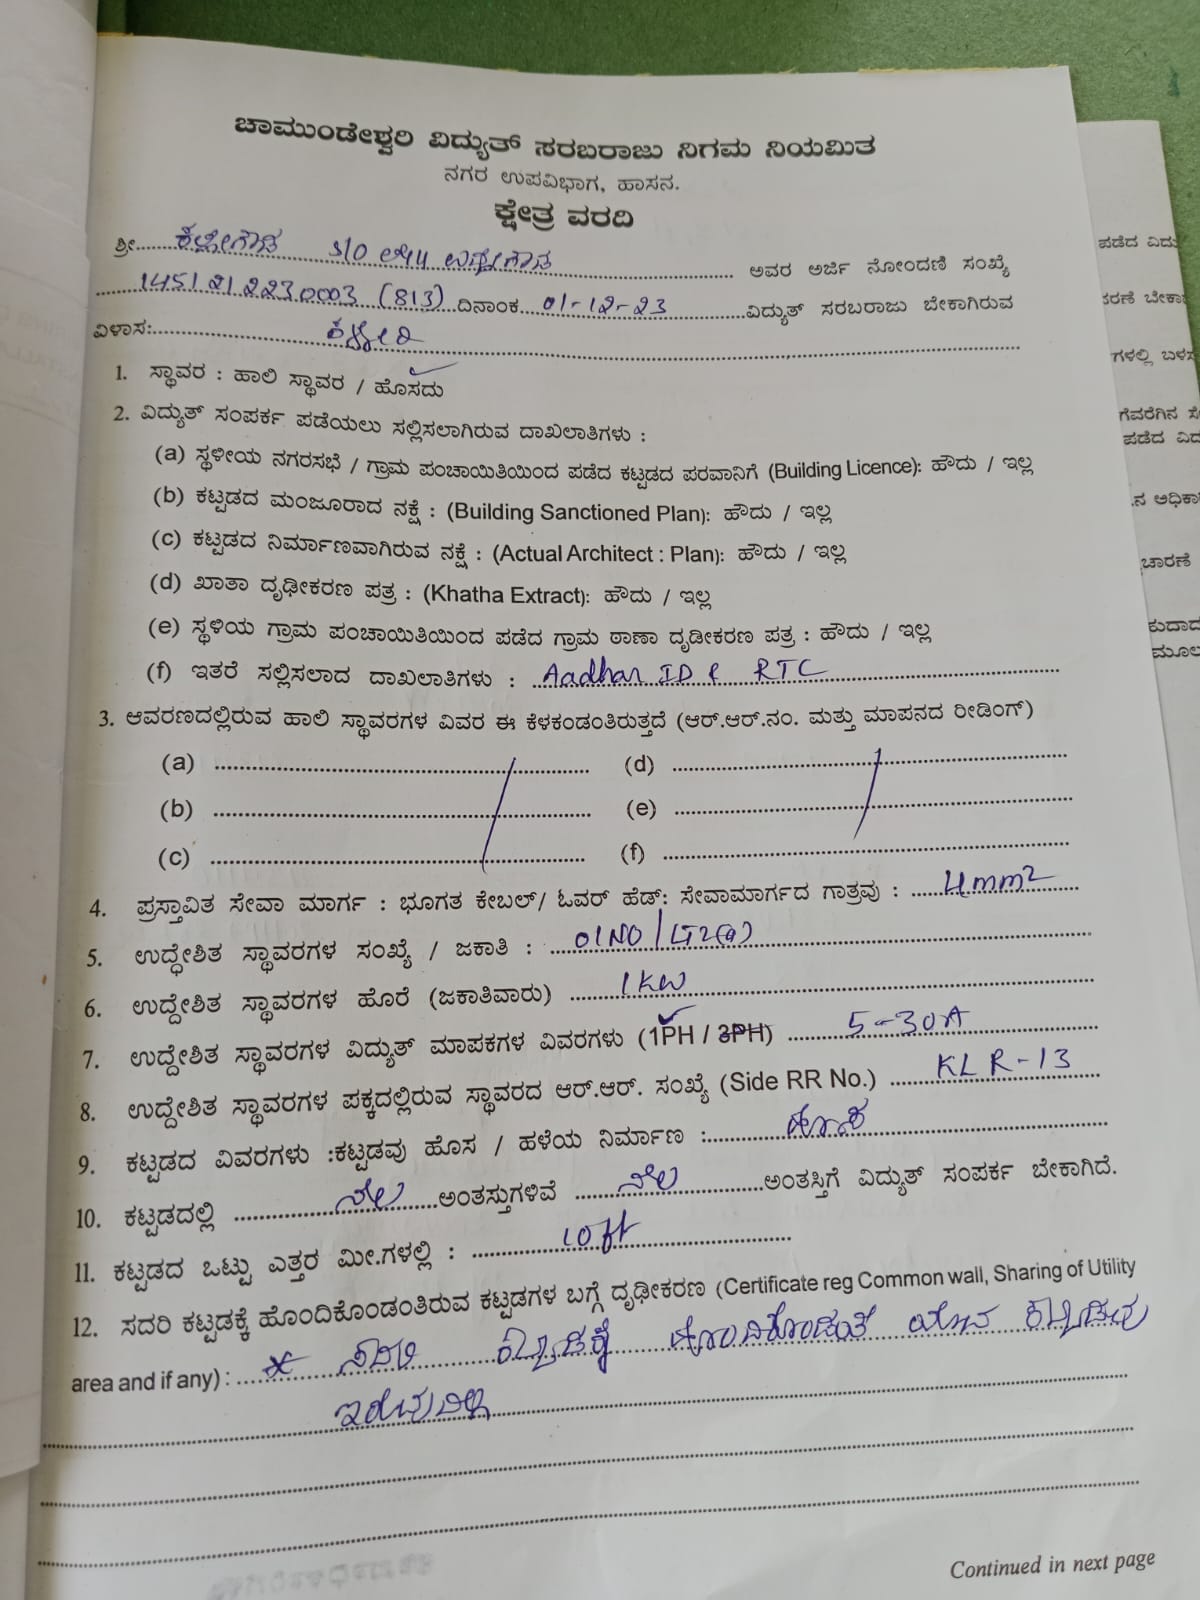 ಚಾಮುಂಡೇಶ್ವರಿ ವಿದ್ಯುತ್ ಸರಬರಾಜು ನಿಗಮ ನಿಯಮಿತ
ನಗರ ಉಪವಿಭಾಗ, ಹಾಸನ.
ಕ್ಷೇತ್ರ ವರದಿ
ಶ್ರೀ......... S/O ......... ಅವರ ಅರ್ಜಿ ನೋಂದಣಿ ಸಂಖ್ಯೆ
(813) ದಿನಾಂಕ 01-12-23 ವಿದ್ಯುತ್ ಸರಬರಾಜು ಬೇಕಾಗಿರುವ
ವಿಳಾಸ:
1. ಸ್ಥಾವರ : ಹಾಲಿ ಸ್ಥಾವರ / ಹೊಸದು
2. ವಿದ್ಯುತ್ ಸಂಪರ್ಕ ಪಡೆಯಲು ಸಲ್ಲಿಸಲಾಗಿರುವ ದಾಖಲಾತಿಗಳು :
(a) ಸ್ಥಳೀಯ ನಗರಸಭೆ / ಗ್ರಾಮ ಪಂಚಾಯಿತಿಯಿಂದ ಪಡೆದ ಕಟ್ಟಡದ ಪರವಾನಿಗೆ (Building Licence): ಹೌದು / ಇಲ್ಲ
(b) ಕಟ್ಟಡದ ಮಂಜೂರಾದ ನಕ್ಷೆ : (Building Sanctioned Plan): ಹೌದು / ಇಲ್ಲ
(c) ಕಟ್ಟಡದ ನಿರ್ಮಾಣವಾಗಿರುವ ನಕ್ಷೆ : (Actual Architect : Plan): ಹೌದು / ಇಲ್ಲ
(d) ಖಾತಾ ದೃಢೀಕರಣ ಪತ್ರ : (Khatha Extract): ಹೌದು / ಇಲ್ಲ
(e) ಸ್ಥಳಿಯ ಗ್ರಾಮ ಪಂಚಾಯಿತಿಯಿಂದ ಪಡೆದ ಗ್ರಾಮ ಠಾಣಾ ದೃಡೀಕರಣ ಪತ್ರ : ಹೌದು / ಇಲ್ಲ
(f) ಇತರೆ ಸಲ್ಲಿಸಲಾದ ದಾಖಲಾತಿಗಳು : Aadhar ID & RTC
3. ಆವರಣದಲ್ಲಿರುವ ಹಾಲಿ ಸ್ಥಾವರಗಳ ವಿವರ ಈ ಕೆಳಕಂಡಂತಿರುತ್ತದೆ (ಆರ್.ಆರ್.ನಂ. ಮತ್ತು ಮಾಪನದ ರೀಡಿಂಗ್)
(a) ......... (d) .........
(b) ......... (e) .........
(c) ......... (f) .........
4. ಪ್ರಸ್ತಾವಿತ ಸೇವಾ ಮಾರ್ಗ : ಭೂಗತ ಕೇಬಲ್/ ಓವರ್ ಹೆಡ್: ಸೇವಾಮಾರ್ಗದ ಗಾತ್ರವು : 4mm2
5. ಉದ್ಧೇಶಿತ ಸ್ಥಾವರಗಳ ಸಂಖ್ಯೆ / ಜಕಾತಿ : 01NO / LT2(a)
6. ಉದ್ದೇಶಿತ ಸ್ಥಾವರಗಳ ಹೊರೆ (ಜಕಾತಿವಾರು) 1KW
7. ಉದ್ದೇಶಿತ ಸ್ಥಾವರಗಳ ವಿದ್ಯುತ್ ಮಾಪಕಗಳ ವಿವರಗಳು (1PH / 3PH) 5-30A
8. ಉದ್ದೇಶಿತ ಸ್ಥಾವರಗಳ ಪಕ್ಕದಲ್ಲಿರುವ ಸ್ಥಾವರದ ಆರ್.ಆರ್. ಸಂಖ್ಯೆ (Side RR No.) KLR-13
9. ಕಟ್ಟಡದ ವಿವರಗಳು :ಕಟ್ಟಡವು ಹೊಸ / ಹಳೆಯ ನಿರ್ಮಾಣ : ಹೊಸ
10. ಕಟ್ಟಡದಲ್ಲಿ ನೆಲ ಅಂತಸ್ತುಗಳಿವೆ ನೆಲ ಅಂತಸ್ತಿಗೆ ವಿದ್ಯುತ್ ಸಂಪರ್ಕ ಬೇಕಾಗಿದೆ.
11. ಕಟ್ಟಡದ ಒಟ್ಟು ಎತ್ತರ ಮೀ.ಗಳಲ್ಲಿ : 10ft
12. ಸದರಿ ಕಟ್ಟಡಕ್ಕೆ ಹೊಂದಿಕೊಂಡಂತಿರುವ ಕಟ್ಟಡಗಳ ಬಗ್ಗೆ ದೃಢೀಕರಣ (Certificate reg Common wall, Sharing of Utility
area and if any) : ಸದರಿ ಕಟ್ಟಡಕ್ಕೆ ಹೊಂದಿಕೊಂಡಂತೆ ಯಾವ ಕಟ್ಟಡವು
ಇರುವುದಿಲ್ಲ
Continued in next page